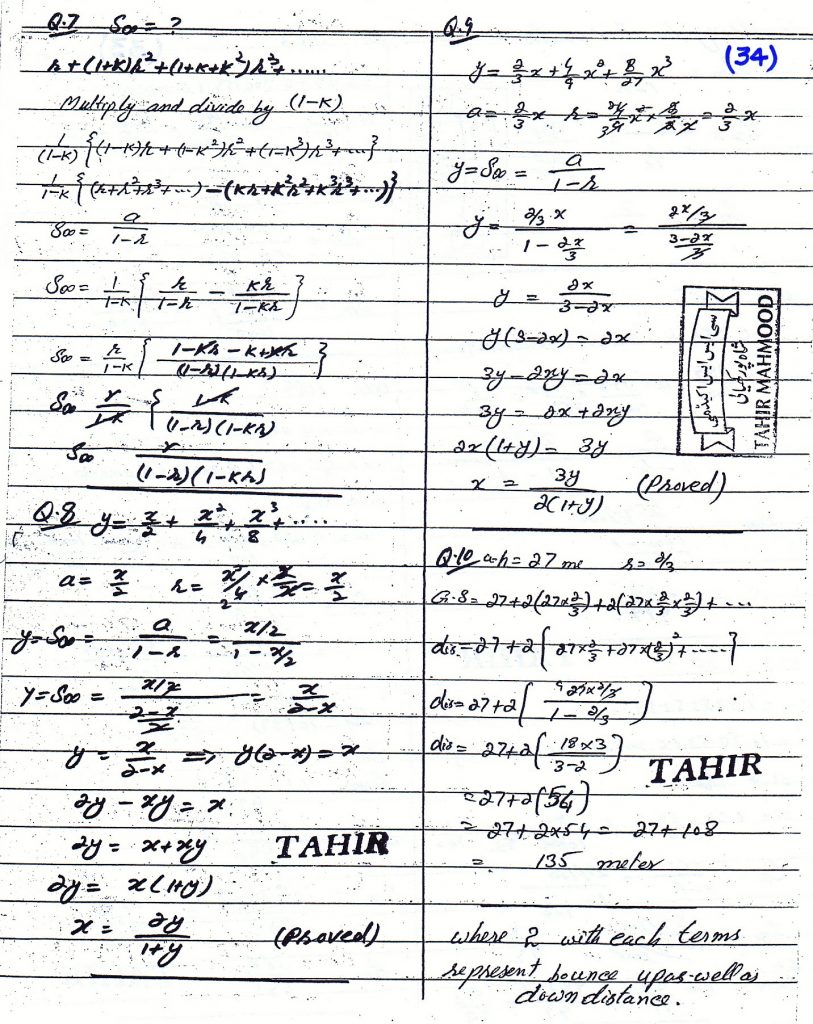 Q.7 S∞ = ?
r + (1+K)r² + (1+K+K²)r³ + ......
Multiply and divide by (1-K)
1/(1-K) {(1-K)r + (1-K²)r² + (1-K³)r³ + ....}
1/1-K {(r+r²+r³+....) - (Kr+K²r²+K³r³+...)}
S∞ = a/1-r
S∞ = 1/1-K { r/1-r - Kr/1-Kr }
S∞ = r/1-K { 1-Kr-K+Kr/(1-r)(1-Kr) }
S∞ r/1-K { 1-K/(1-r)(1-Kr)
S∞ r/(1-r)(1-Kr)
Q.8 y = x/2 + x²/4 + x³/8 + .....
a = x/2 r = x²/4 × 2/x = x/2
y = S∞ = a/1-r = x/2/1-x/2
Y = S∞ = x/2/2-x/2 = x/2-x
y = x/2-x ⇒ y(2-x) = x
2y - xy = x
2y = x+xy
TAHIR
2y = x(1+y)
x = 2y/1+y (Proved)
Q.9
(34)
y = 2/3 x + 4/9 x² + 8/27 x³
a = 2/3 x r = 4/9 x² × 3/2x = 2/3 x
y = S∞ = a/1-r
y = 2/3 x/1 - 2x/3 = 2x/3/3-2x/3
y = 2x/3-2x
y(3-2x) = 2x
3y - 2xy = 2x
3y = 2x + 2xy
2x(1+y) = 3y
x = 3y/2(1+y) (Proved)
سی ایس ایس اکیڈمی
TAHIR MAHMOOD
Q.10 a.h = 27 me r = 2/3
G.S = 27+2(27×2/3)+2(27×2/3×2/3)+ ....
dis = 27+2[27×2/3+27×(2/3)²+......]
dis = 27+2[27×2/3/1-2/3]
dis = 27+2[18×3/3-2]
TAHIR
= 27+2(54)
= 27+2×54 = 27+108
= 135 meter
where 2 with each terms
represent bounce up as well as
down distance.